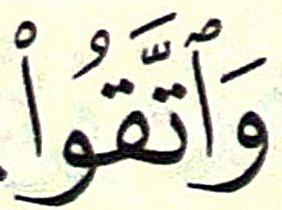 وَٱتَّقُواْ